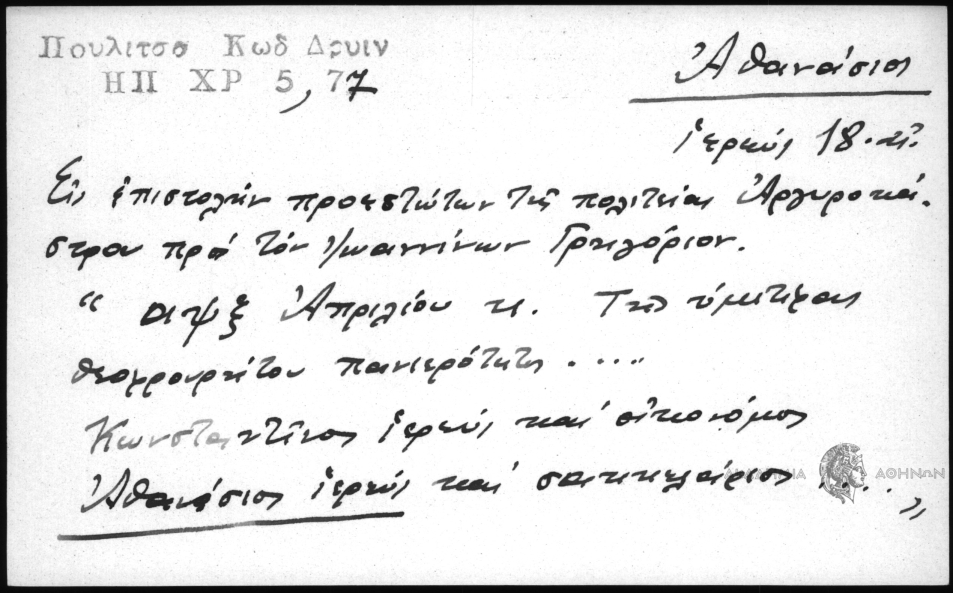 Πουλιτσα Κωδ Δρυιν
ΗΠ ΧΡ 5, 77
Ἀθανάσιος
ἱερεύς 18. αἰ.
Εἰς ἐπιστολὴν προεστώτων τῆς πολιτείας Ἀργυροκά-
στρου πρὸς τὸν Ἰωαννίνων Γρηγόριον.
“ αιψξ Ἀπριλίου κ. Τῆς ὑμετέρας
θεοφρουρήτου πανιερότητος ....
Κωνσταντῖνος ἱερεύς καὶ οἰκονόμος
Ἀθανάσιος ἱερεύς καὶ σακκελάριος .... „
ΑΘΗΝΩΝ